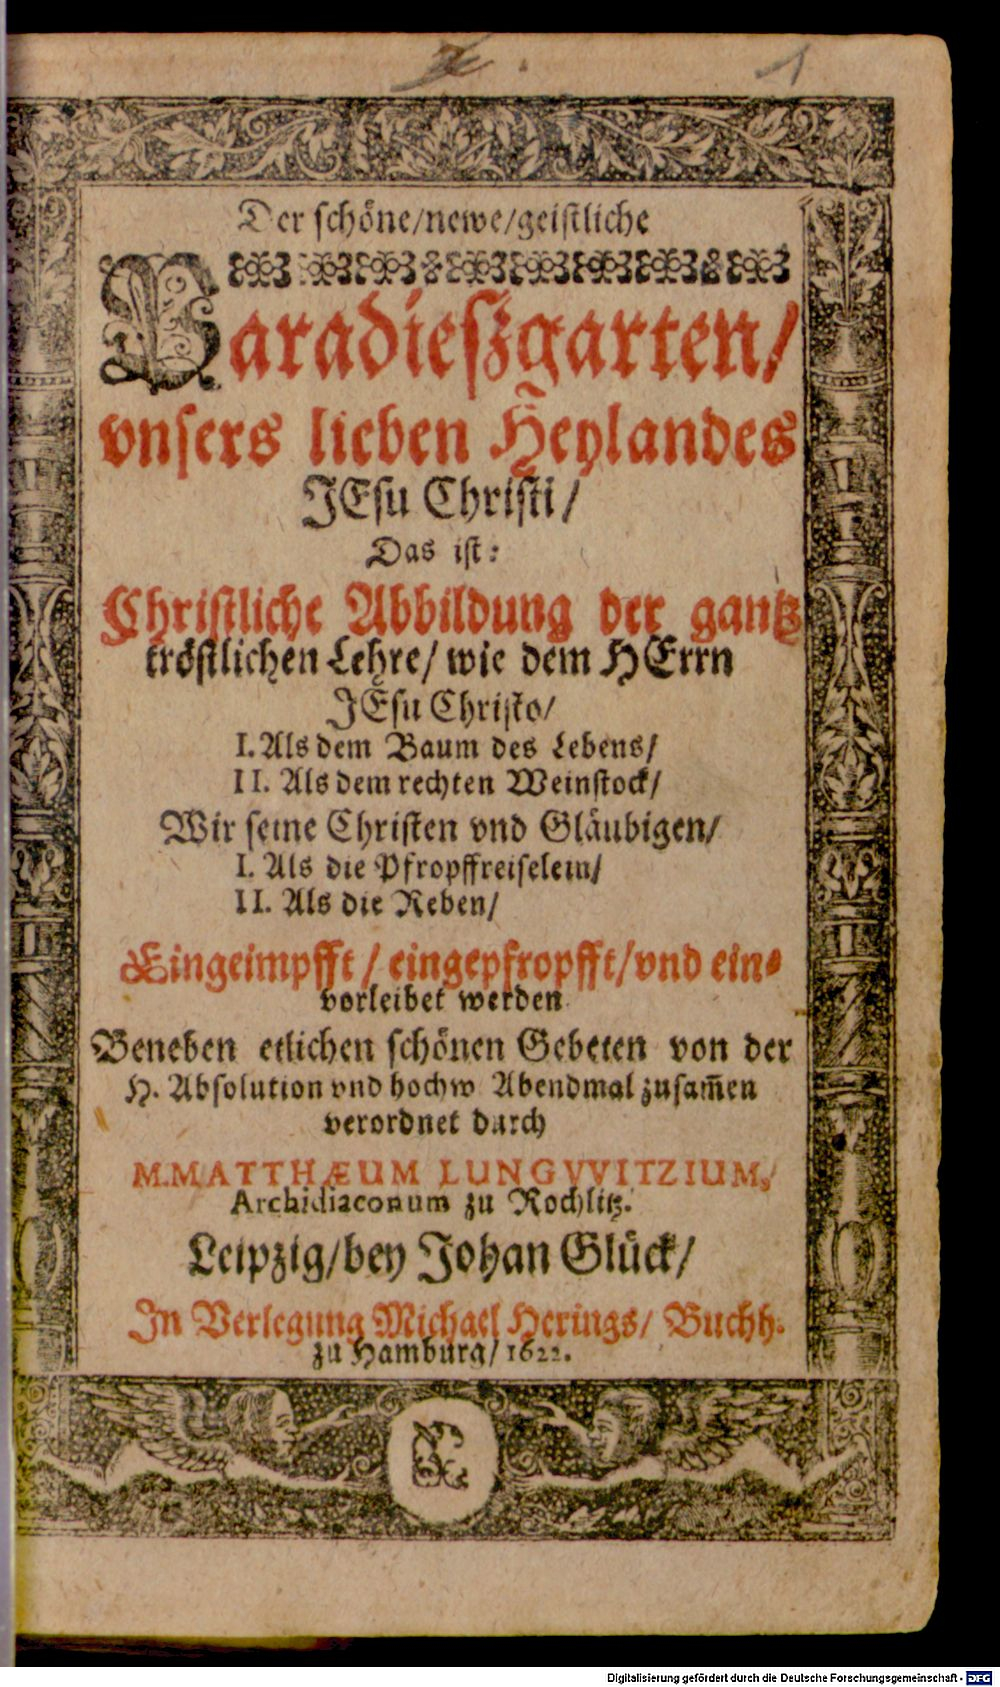 1
Der schöne/newe/geistliche
Paradieszgarten/
vnsers lieben Heylandes
JEsu Christi/
Das ist:
Christliche Abbildung der gantz
tröstlichen Lehre/ wie dem HErrn
JEsu Christo/
I. Als dem Baum des Lebens/
II. Als dem rechten Weinstock/
Wir seine Christen vnd Gläubigen/
I. Als die Pfropffreiselein/
II. Als die Reben/
Eingeimpfft/ eingepfropfft/vnd ein-
vorleibet werden
Beneben etlichen schönen Gebeten von der
H. Absolution vnd hochw Abendmal zusam̃en
verordnet durch
M. MATTHÆUM LUNGVVITZIUM,
Archidiaconum zu Rochlitz.
Leipzig/bey Johan Glück/
In Verlegung Michael Herings/ Buchh.
zu Hamburg/ 1622.
Digitalisierung gefördert durch die Deutsche Forschungsgemeinschaft - DFG